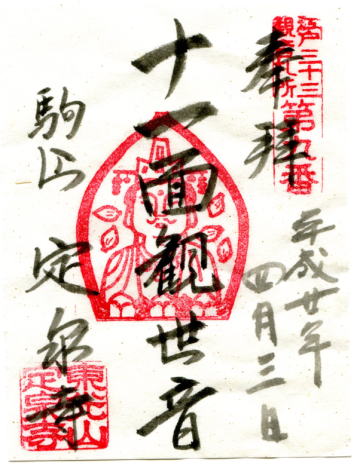 江戸三十三
観音札所第九番
奉拝
平成廿年
四月三日
十一面観世音
駒込 定泉寺
東光山
定泉寺